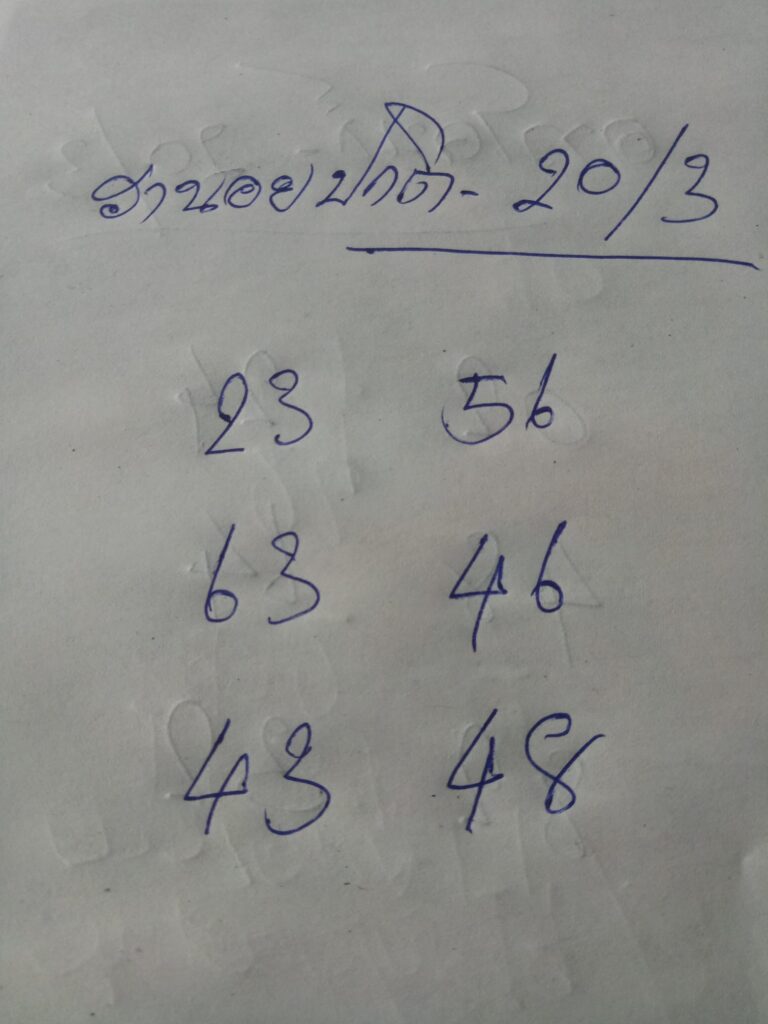 ฮานอยปกติ - 20/3
23 56
63 46
43 48